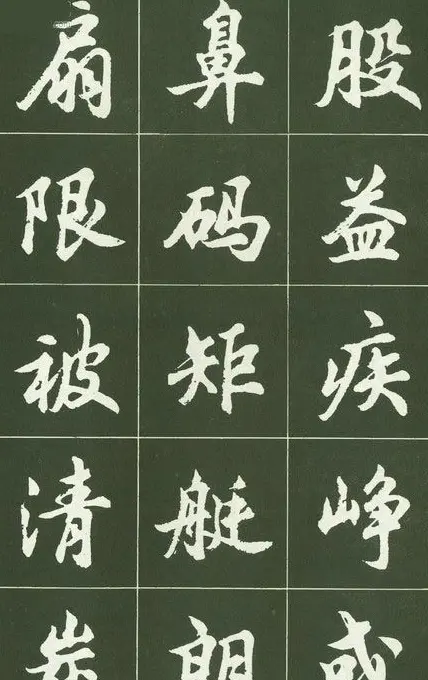 扇鼻股
限码益
被矩疾
清艇峥
炭朗或